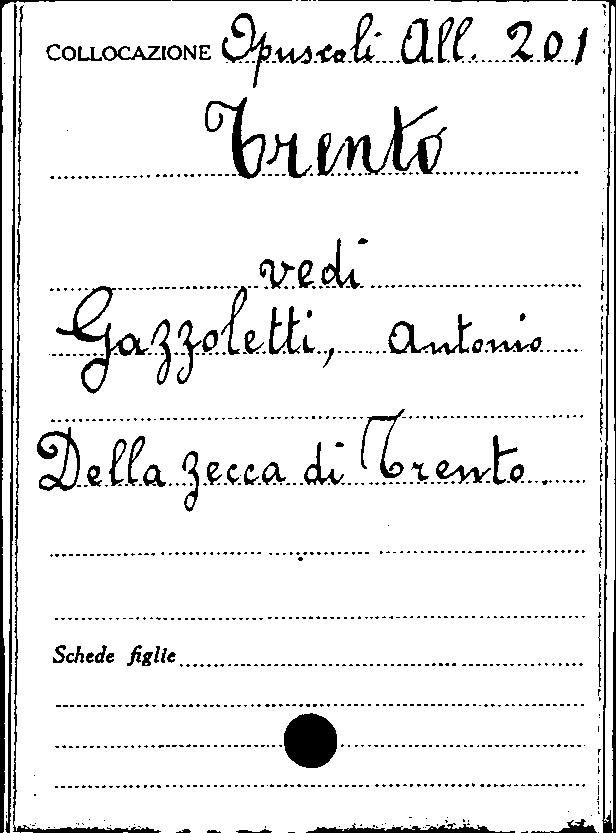 COLLOCAZIONE Opuscoli All. 201
Trento
vedi
Gazzoletti, Antonio
Della zecca di Trento.
Schede figlie